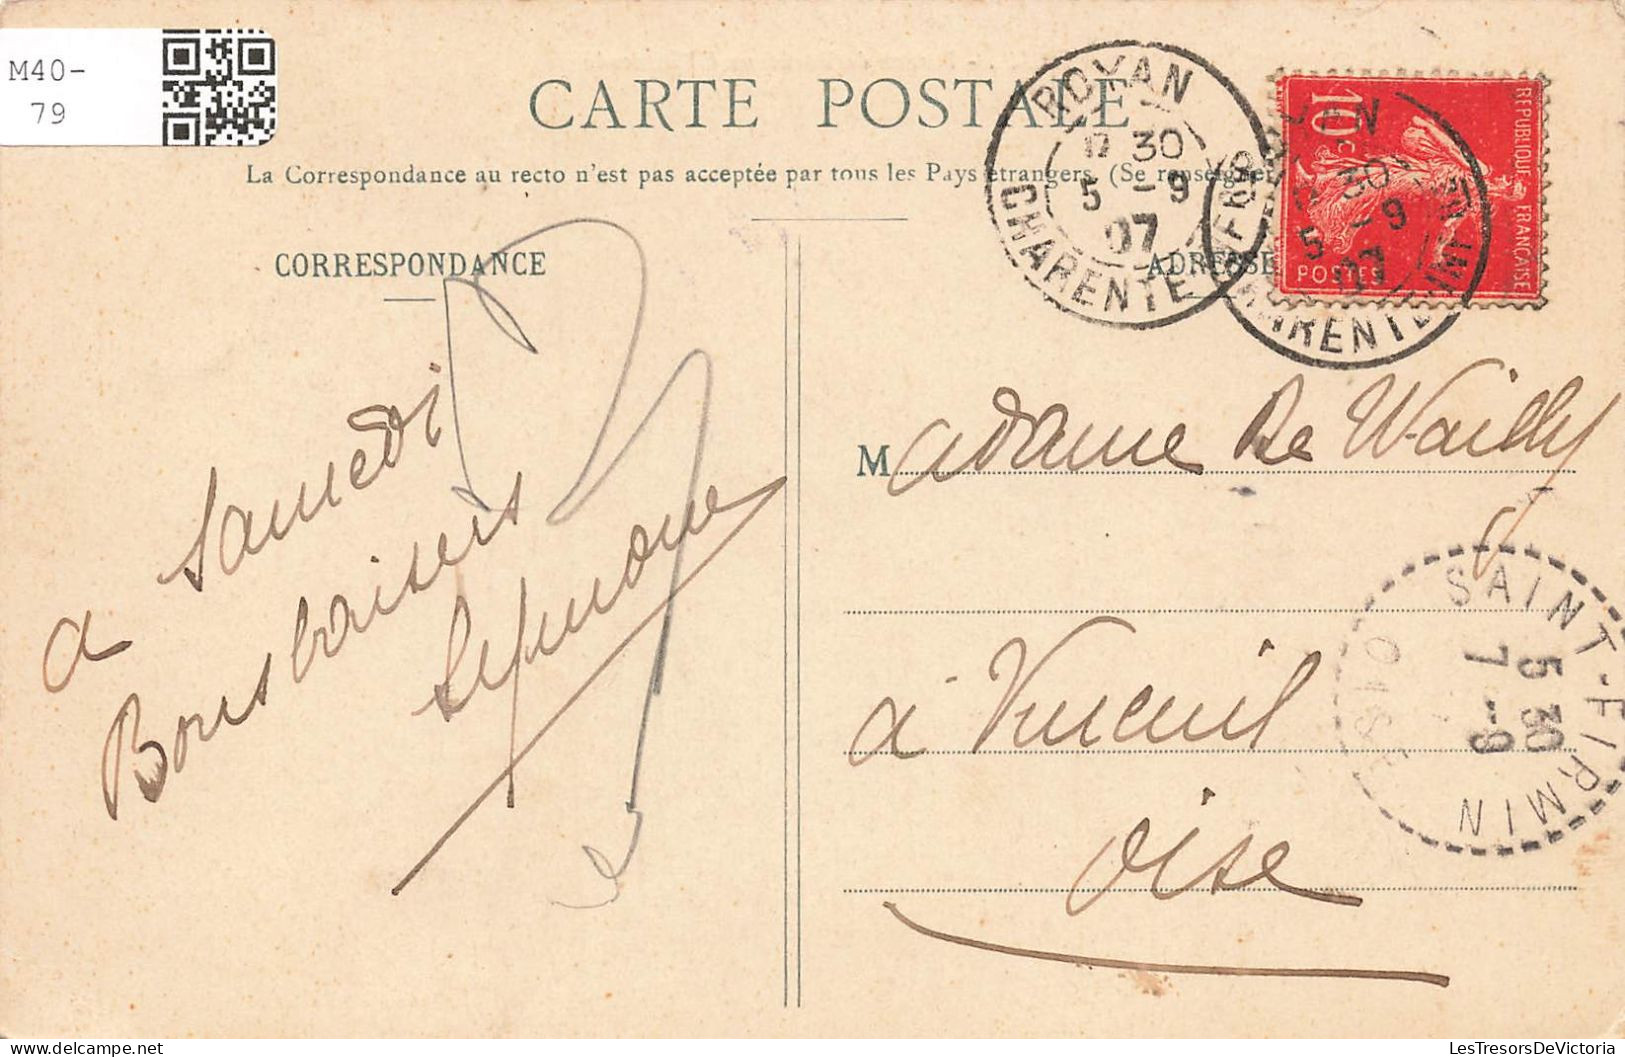 M40-
79
CARTE POSTALE
La Correspondance au recto n'est pas acceptée par tous les Pays étrangers (Se renseigner
CORRESPONDANCE
ADRESSE
ROYAN
30
5 -9
07
CHARENTE
30
5 -9
07
10c
REPUBLIQUE FRANÇAISE
POSTES
a Samedi
Bons baisers
M adame De Wailly
à Vineuil
Oise
SAINT-FIRMIN
5 30
7 -9
OISE
LesTresorsDeVictoria